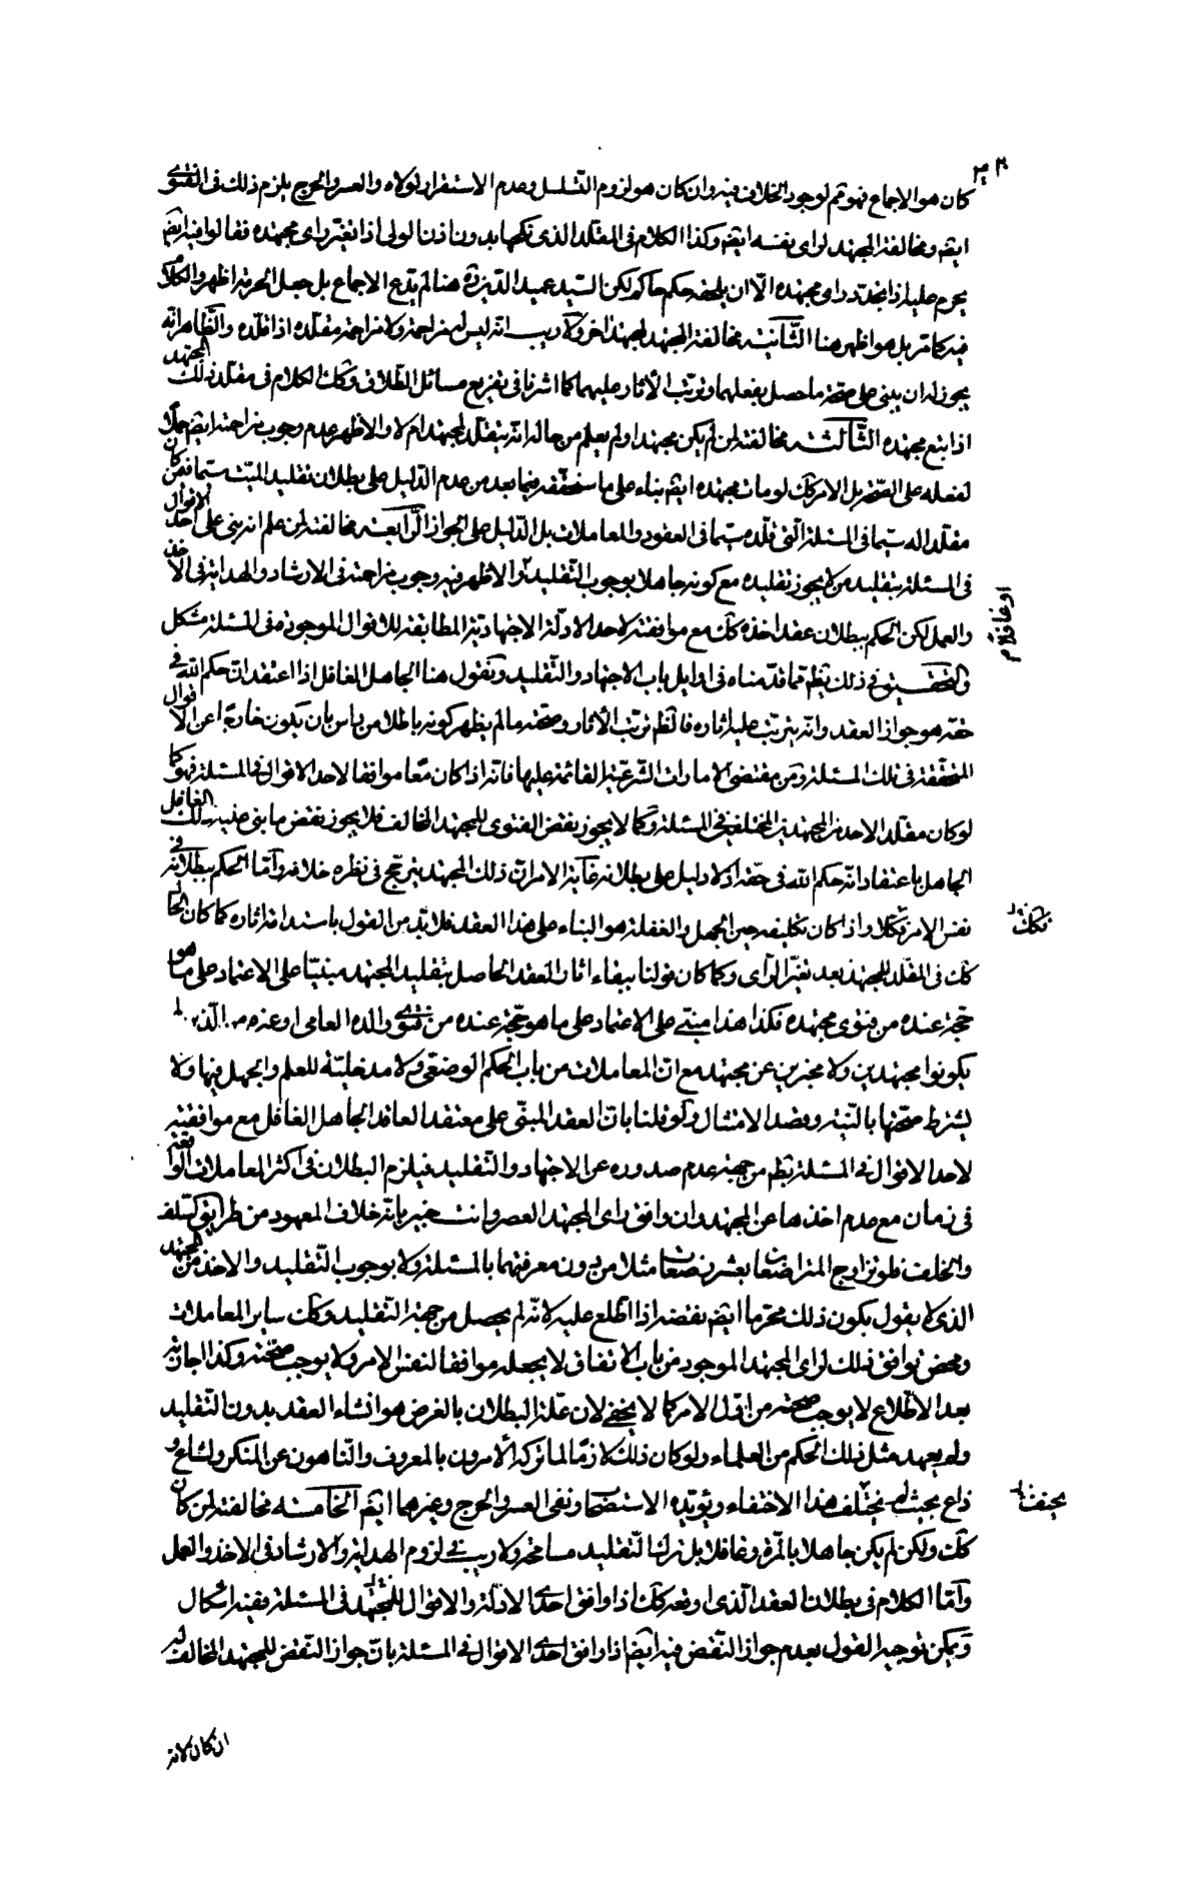 كان هو الاجماع فهو ثم لوجود الخلاف فيه وان كان هو لزوم التسلسل وعدم الاستقرار لولاه والعسر والحرج يلزم ذلك فى الفتوى
ايضً ومخالفة المجتهد لراى نفسه ايضً وكذا الكلام فى المقلد الذى نكحها بدون اذن الولى اذا تغيّر راى مجتهده فقالوا فيه ايضً
يحرم عليه اذا تجدد راى مجتهده الّا ان يلحقه حكم حاكم لكن السيّد عميد الدّين ره هنا لم يدّع الاجماع بل جعل الحرمة اظهر والكلام
فيه كما مرّ بل هو اظهر هنا الثّانية مخالفة المجتهد لمجتهد اخر ولا ريب انّه ليس له مزاحمة ولا مزاحمة مقلّده اذا قلّده والظّاهر انّه
يجوز له ان يبنى على صحّة ما حصل بفعلهما وترتّب الأثار عليهما كما اشرنا فى تفريع مسائل الطّلاق وكك الكلام فى مقلّد ذلك المجتهد
اذا تبع مجتهده الثّالثة مخالفته لمن لم يكن مجتهدا ولم يعلم من حاله انّه يقلّد لمجتهد ام لا والاظهر عدم وجوب مزاحمته ايضً حملا
لفعله على الصّحّة بل الامر كك لو مات مجتهده ايضً بناء على ما سنحقّقه فيما بعد من عدم الدّليل على بطلان تقليد الميّت سيّما فمن كان
مقلّدا له سيّما فى المسئلة الّتى قلّده سيّما فى العقود والمعاملات بل الدّليل على الجواز الرّابعة مخالفته لمن علم انه بنى على احد الاقوال
فى المسئلة بتقليد من لا يجوز تقليده مع كونه جاهلا بوجوب التّقليد والاظهر فيه وجوب مزاحمته فى الارشاد والهداية فى الاخذ
والعمل لكن الحكم ببطلان عقد اخذه كك مع موافقته لاحد الادلّة الاجتهاديّة المطابقة للاقوال الموجودة فى المسئلة مشكل
والتحقيق فى ذلك يظهر ممّا قدّمناه فى اوايل باب الاجتهاد والتّقليد ونقول هنا الجاهل الغافل اذا اعتقد ان حكم اللّه فى
حقّه هو جواز العقد وانّه يترتّب عليه اثاره فالظّم ترتّب الأثار وصحّته ما لم يظهر كونه باطلا من باس بان يكون خارجا عن الاقوال
المحقّقة فى تلك المسئلة ومن مقتضى الامارات الشّرعيّة القائمة عليها فانّه اذا كان ممّا موافقا لاحد الاقوال فى المسئلة فهو كما
لو كان مقلّدا لاحد من المجتهدين المختلفين فى المسئلة وكما لا يجوز نقض الفتوى للمجتهد المخالف فلا يجوز نقض ما بنى عليه ذلك الغافل
الجاهل باعتقاد انّه حكم اللّه فى حقّه اذ لا دليل على بطلانه غاية الامر ان ذلك المجتهد يترجّح فى نظره خلافه وامّا الحكم ببطلانه فى
نفس الامر فكلّا واذا كان تكليفه حين الجهل والغفلة هو البناء على هذا العقد فلا بدّ من القول باستدامة اثاره كما كان الحال
كك فى المقلّد للمجتهد بعد تغيّر الرّأى وكما كان قولنا ببقاء اثار العقد الحاصل بتقليد المجتهد مبنيّا على الاعتماد على ما هو
حجّة عنده من فتوى مجتهده فكذا هذا مبتن على الاعتماد على ما هو حجّة عنده من فتوى والده العامى او غيره من الّذين لم
يكونوا مجتهدين ولا مخبرين عن مجتهد مع انّ المعاملات من باب الحكم الوضعى ولا مدخليّة للعلم والجهل فيها ولا
يشترط صحّتها بالنّية وقصد الامتثال ولو قلنا بان العقد المبنّى على معتقد العاقد الجاهل الغافل مع موافقته
لاحد الاقوال فى المسئلة بطم من جهة عدم صدوره عن الاجتهاد والتقليد فيلزم البطلان فى اكثر المعاملات الواقعة
فى زمان مع عدم اخذها عن المجتهد وان وافق راى المجتهد العصر وانت خبير بانّه خلاف المعهود من طرايق السّلف
والخلف فلو تزاوج المتراضعان بعشر رضعات مثلا من دون معرفتهما بالمسئلة ولا بوجوب التّقليد والاخذ من المجتهد
الذى لا يقول بكون ذلك محرّما ايضً نقضه اذا اطّلع عليه لانّه لم يحصل من جهة التّقليد وكك ساير المعاملات
ومحض توافق ذلك لراى المجتهد الموجود من باب الاتفاق لا يجعله موافقا لنفس الامر ولا يوجب صحّته وكذا اجازته
بعد الاطّلاع لا يوجب صحّته من اوّل الامر كما لا يخفى لان علّة البطلان بالغرض هو انشاء العقد بدون التّقليد
ولم يعهد مثل ذلك الحكم من العلماء ولو كان ذلك لازما لما تركه الأمرون بالمعروف والنّاهون عن المنكر ولشاع و
ذاع بحيث لم يختلف هذا الاختفاء ويؤيّده الاستصحاب ونفى العسر والحرج وغيرهما ايضً الخامسة مخالفته لمن كان
كك ولكن لم يكن جاهلا بالمرّة وغافلا بل ترك التّقليد مسامحة ولا ريب فى لزوم الهداية والارشاد فى الاخذ والعمل
وامّا الكلام فى بطلان العقد الّذى اوقعه كك اذا وافق احدى الادلّة والاقوال للمجتهد فى المسئلة ففيه اشكال
ويمكن توجيه القول بعدم جواز النّقض فيه ايضً اذا وافق احدى الاقوال فى المسئلة بانّ جواز النّقض للمجتهد المخالف له
او غافلا م
يختف
ان كان لانّه